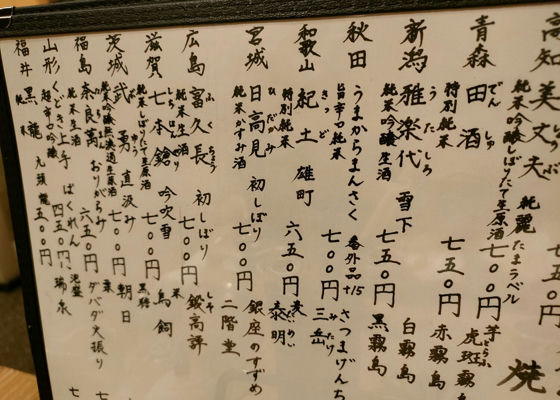 高知 美丈夫 純麗たまラベル
純米吟醸しぼりたて生原酒 七五〇円
青森 田酒
でんしゅ
特別純米 七〇〇円
新潟 雅楽代 雪下
うたしろ
純米吟醸生酒 七五〇円
秋田 うまからまんさく 番外品+15
旨辛口純米 七五〇円
和歌山 紀土 雄町
きっど
特別純米 七〇〇円
六五〇円
宮城 日高見 初しぼり
ひだかみ
純米かすみ酒 七〇〇円
広島 富久長 初しぼり
純米生酒 七〇〇円
滋賀 七本鎗 吟吹雪
純米しぼりたて生原酒 七〇〇円
茨城 武勇 直汲み
ぶゆう
純米吟醸無濾過生原酒 七〇〇円
福島 奈良萬 おりがらみ
六五〇円
山形 くどき上手 ばくれん
超辛口吟醸 四五〇円
福井 黒龍 九頭龍
純米 五〇〇円
焼
芋
虎斑霧島
とらふ
赤霧島
白霧島
黒霧島
さつまげんち
三岳
みたけ
麦
泰明
たいめい
銀座のすずめ
二階堂
しそ
鍛高譚
米
鳥飼
黒糖
朝日
ダバダ火振り
泡盛
瑞泉